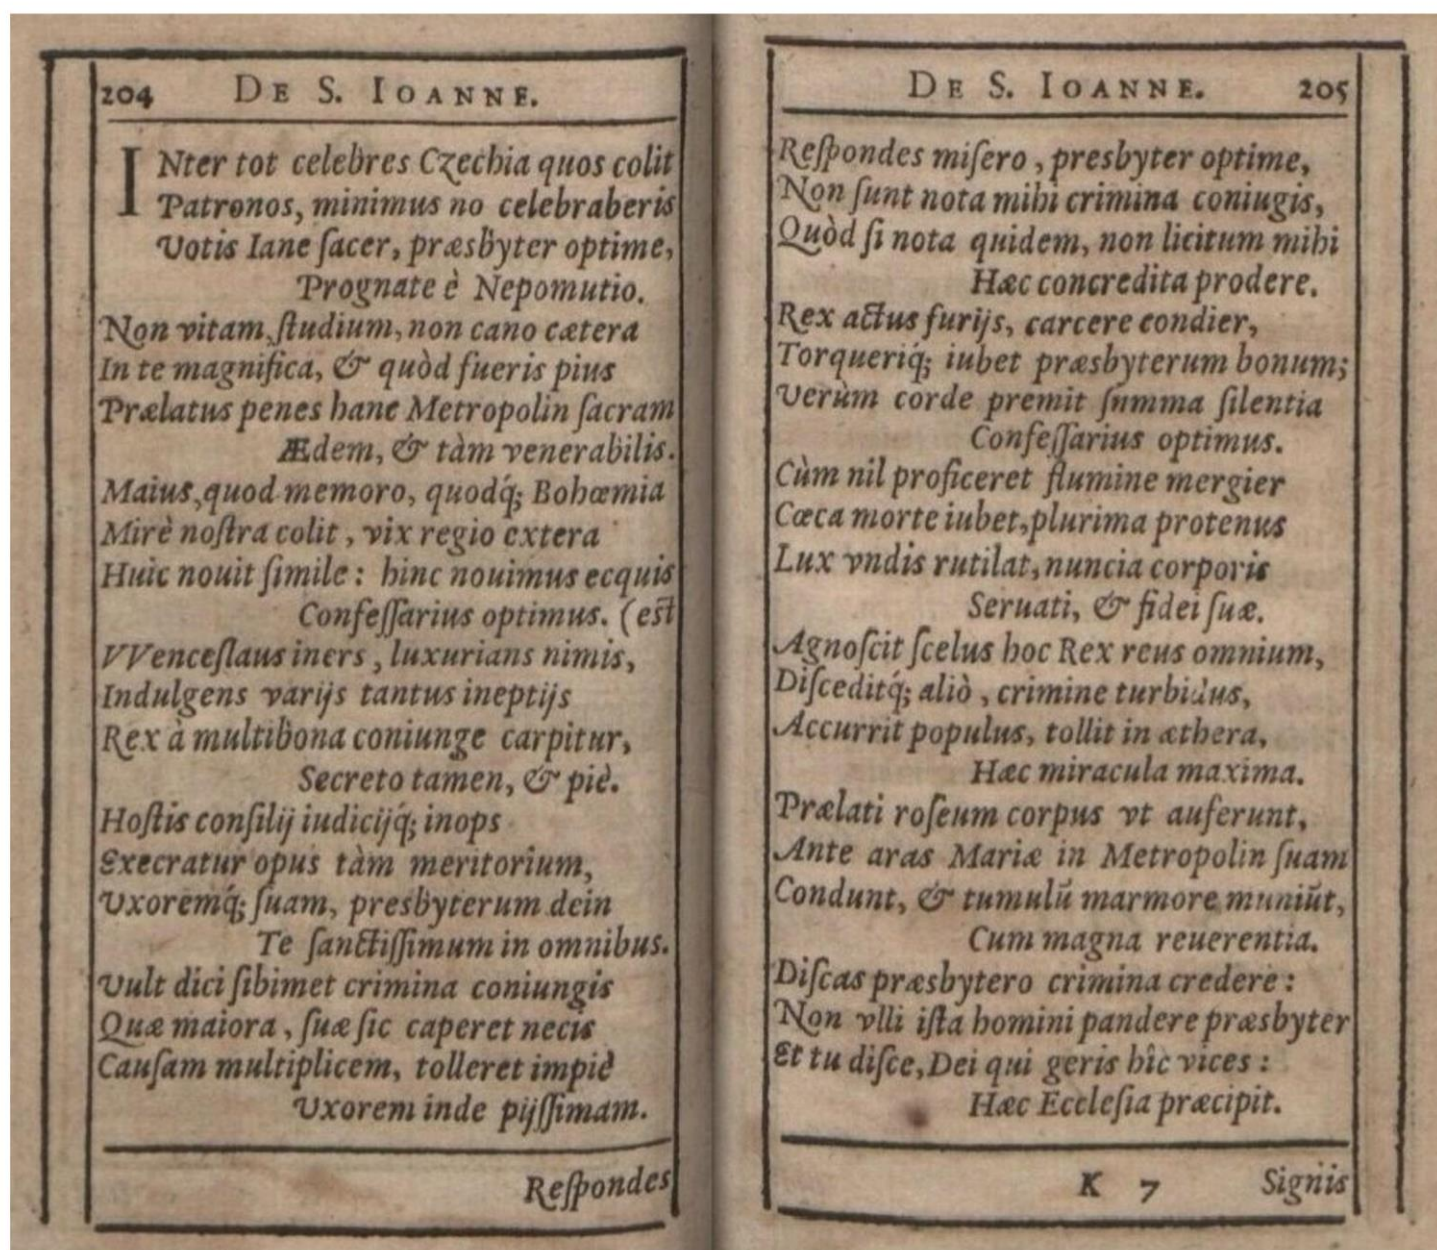 204 DE S. IOANNE.
INter tot celebres Czechia quos colit
Patronos, minimus nō celebraberis
Votis Iane ſacer, præsbyter optime,
Prognate è Nepomutio.
Non vitam, ſtudium, non cano cætera
In te magnifica, & quòd fueris pius
Prælatus penes hanc Metropolin ſacram
Ædem, & tàm venerabilis.
Maius, quod memoro, quodq́; Bohœmia
Mirè noſtra colit, vix regio extera
Huic nouit ſimile: hinc nouimus ecquis
Confeſſarius optimus. (eſt
VVenceſlaus iners, luxurians nimis,
Indulgens varijs tantus ineptijs
Rex à multibona coniunge carpitur,
Secreto tamen, & piè.
Hoſtis conſilij iudicijq́; inops
Execratur opus tàm meritorium,
Vxoremq́; ſuam, presbyterum dein
Te ſanctiſſimum in omnibus.
Vult dici ſibimet crimina coniungis
Quæ maiora, ſuæ ſic caperet necis
Cauſam multiplicem, tolleret impiè
Vxorem inde pijſſimam.
Reſpondes
DE S. IOANNE. 205
Reſpondes miſero, presbyter optime,
Non ſunt nota mihi crimina coniugis,
Quòd ſi nota quidem, non licitum mihi
Hæc concredita prodere.
Rex actus furijs, carcere condier,
Torqueriq́; iubet præsbyterum bonum;
Verùm corde premit ſumma ſilentia
Confeſſarius optimus.
Cùm nil proficeret flumine mergier
Cœca morte iubet, plurima protenus
Lux vndis rutilat, nuncia corporis
Seruati, & fidei ſuæ.
Agnoſcit ſcelus hoc Rex reus omnium,
Diſceditq́; aliò, crimine turbidus,
Accurrit populus, tollit in æthera,
Hæc miracula maxima.
Prælati roſeum corpus vt auferunt,
Ante aras Mariæ in Metropolin ſuam
Condunt, & tumulū marmore muniūt,
Cum magna reuerentia.
Diſcas præsbytero crimina credere:
Non vlli iſta homini pandere præsbyter
Et tu diſce, Dei qui geris hîc vices:
Hæc Eccleſia præcipit.
K 7 Signis